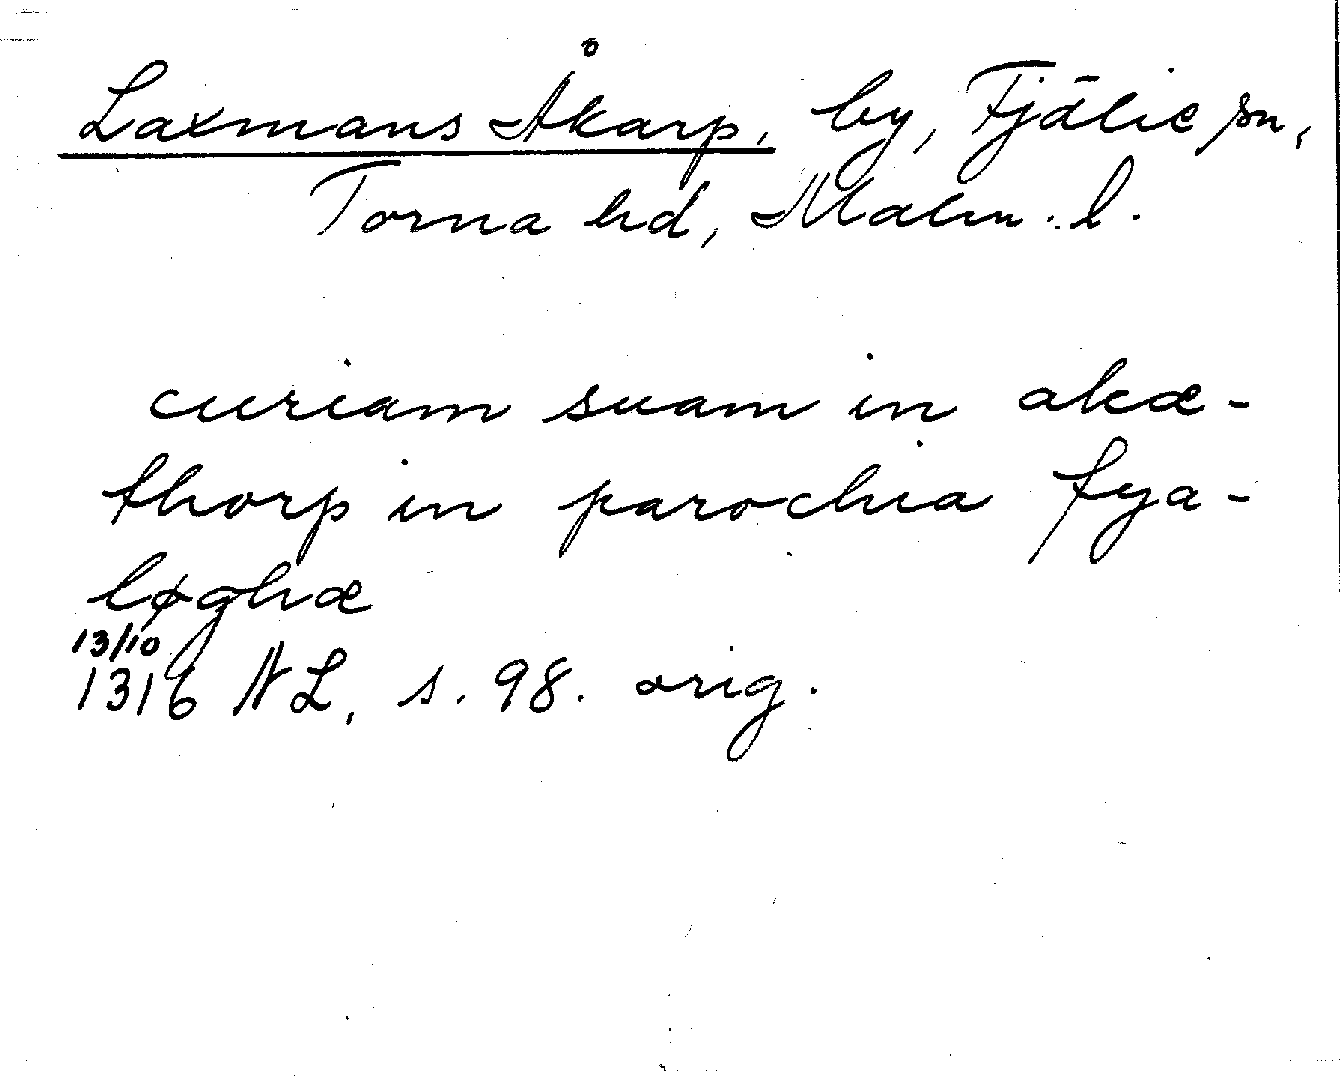 Laxmans Åkarp, by, Fjälie sn,
Torna hd, Malm. l.
curiam suam in akæ-
thorp in parochia fya-
løghæ
13/10
1316 NL, s. 98. orig.